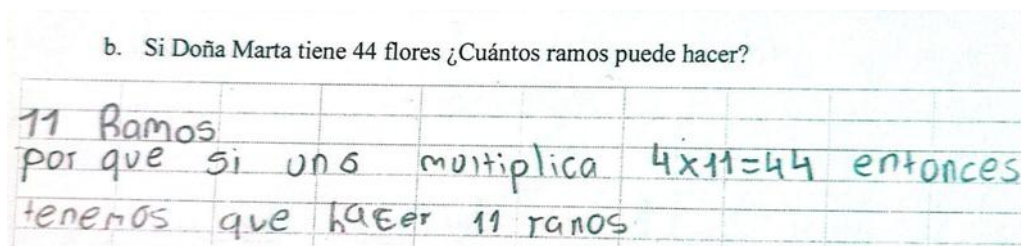 b. Si Doña Marta tiene 44 flores ¿Cuántos ramos puede hacer?
11 Ramos
por que si uno multiplica 4x11=44 entonces
tenemos que hacer 11 ramos